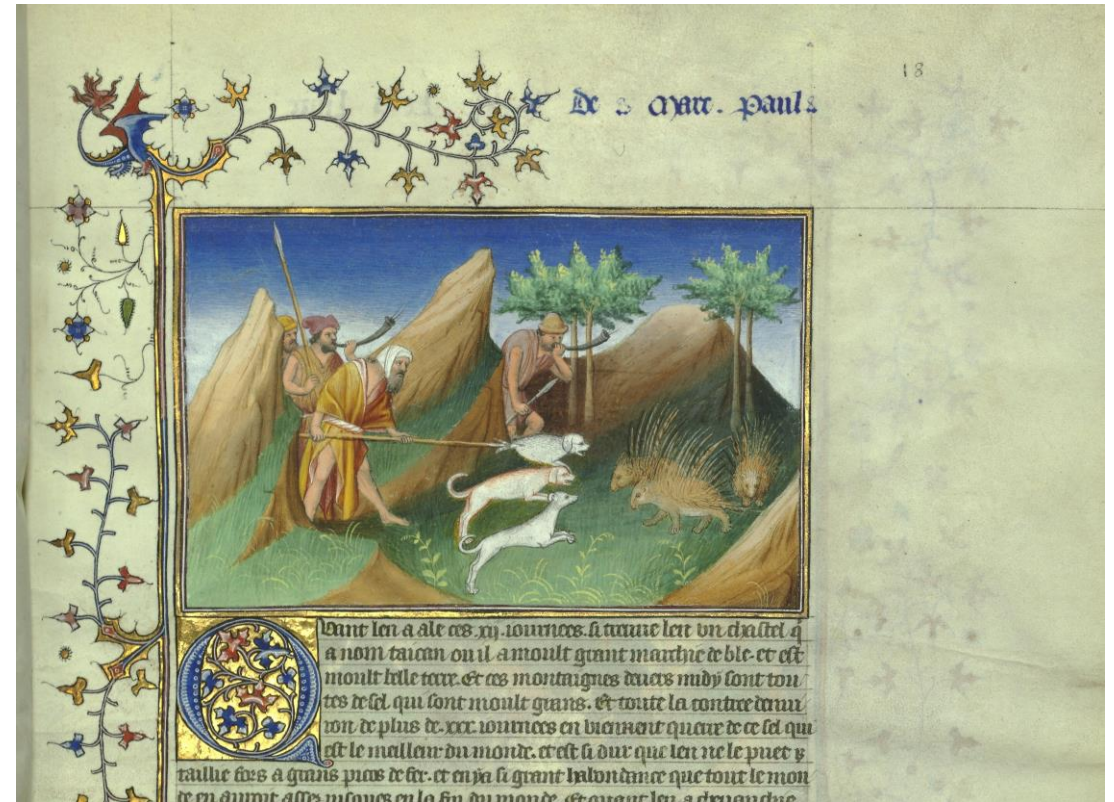 18
De s Marc. Pauls
Quant len a ale ces .xij. iournees. si treuue len vn chastel q
a nom taican ou il a moult grant marchie de ble. et est
moult bele terre. Et ces montaignes deuers midy sont tou
tes de sel qui sont moult grans. Et toute la contree denui
ron de plus de .xxx. iournees en viennent querre de ce sel qui
est le meilleur du monde. et est si dur que len ne le puet
taillie fors a grans picos de fer. et en ya si grant habondance que tout le mon
de en auroit assez iusques en la fin du monde. Et quant len a cheuauchie